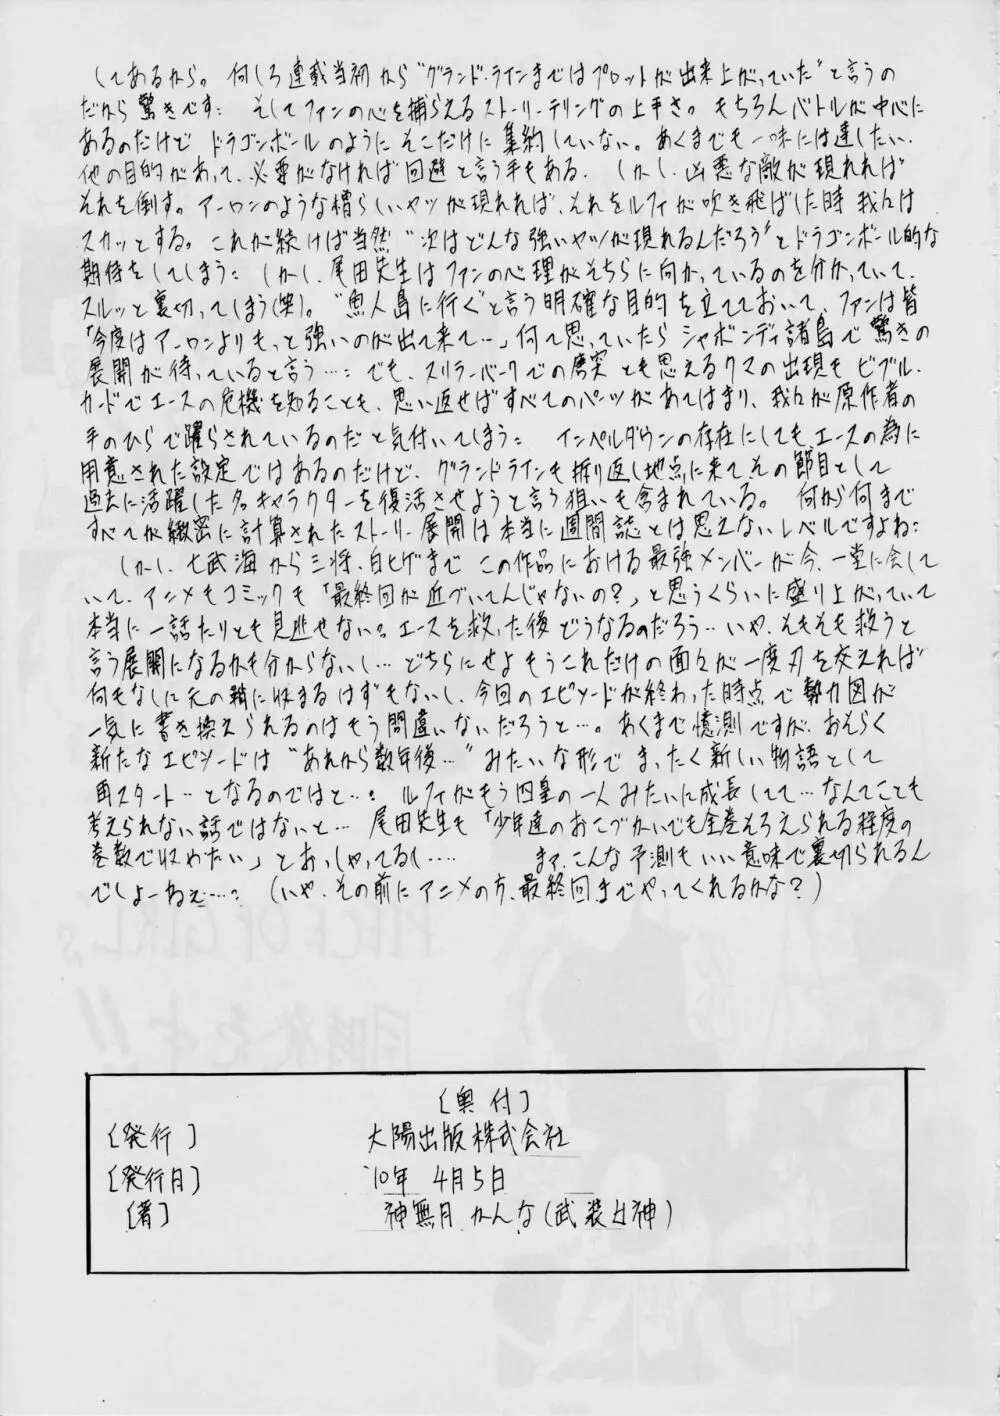 してあるから。何しろ連載当初から“グランド・ラインまではプロットが出来上がっていた”と言うの
だから驚きです: そしてファンの心を捕らえるストーリーテリングの上手さ。もちろんバトルが中心に
あるのだけど ドラゴンボールのように そこだけに集約していない。あくまでも一味には達したい、
他の目的があって、必要がなければ回避と言う手もある。しかし、凶悪な敵が現れれば
それを倒す。アーロンのような憎らしいヤツが現れれば、それをルフィが吹き飛ばした時 我々は
スカッとする。これが続けば当然“次はどんな強いヤツが現れるんだろう”とドラゴンボール的な
期待をしてしまう: しかし、尾田先生はファンの心理がそちらに向かっているのを分かっていて、
スルッと裏切ってしまう(笑)。“魚人島に行く”と言う明確な目的を立てておいて、ファンは皆
「今度はアーロンよりもっと強いのが出て来て…」何て思っていたらシャボンディ諸島で驚きの
展開が待っていると言う…: でも、スリラーバークでの唐突とも思えるクマの出現も ビブル・
カードでエースの危機を知ることも、思い返せばすべてのパーツがあてはまり、我々が原作者の
手のひらで躍らされているのだと気付いてしまう: インペルダウンの存在にしても、エースの為に
用意された設定ではあるのだけど、グランドラインも折り返し地点に来てその節目として
過去に活躍した名キャラクターを復活させようと言う狙いも含まれている。何から何まで
すべてが緻密に計算されたストーリー展開は本当に週間誌とは思えないレベルですよね:
しかし、七武海から三将、白ヒゲまで この作品における最強メンバーが今、一堂に会して
いて、アニメもコミックも「最終回が近づいてんじゃないの?」と思うくらいに盛り上がっていて
本当に一話たりとも見逃せない。エースを救った後どうなるのだろう‥いや、そもそも救うと
言う展開になるかも分からないし… どちらにせよもうこれだけの面々が一度刃を交えれば
何もなしに元の鞘に収まるはずもないし、今回のエピソードが終わった時点で勢力図が
一気に書き換えられるのはもう間違いないだろうと…。あくまで憶測ですが、おそらく
新たなエピソードは“あれから数年後…”みたいな形でまったく新しい物語として
再スタート…となるのではと…: ルフィがもう四皇の一人みたいに成長してて…なんてことも
考えられない話ではないと… 尾田先生も「少年達のおこづかいでも全巻そろえられる程度の
巻数で収めたい」とおっしゃってるし…. まァ、こんな予測もいい意味で裏切られるん
でしょーねぇ…: (いや、その前にアニメの方、最終回までやってくれるかな?)
PIECE OF GIRLs
同時発売です!!
〔奥付〕
〔発行〕 大陽出版株式会社
〔発行日〕 '10年 4月5日
〔著〕 神無月かんな(武装女神)